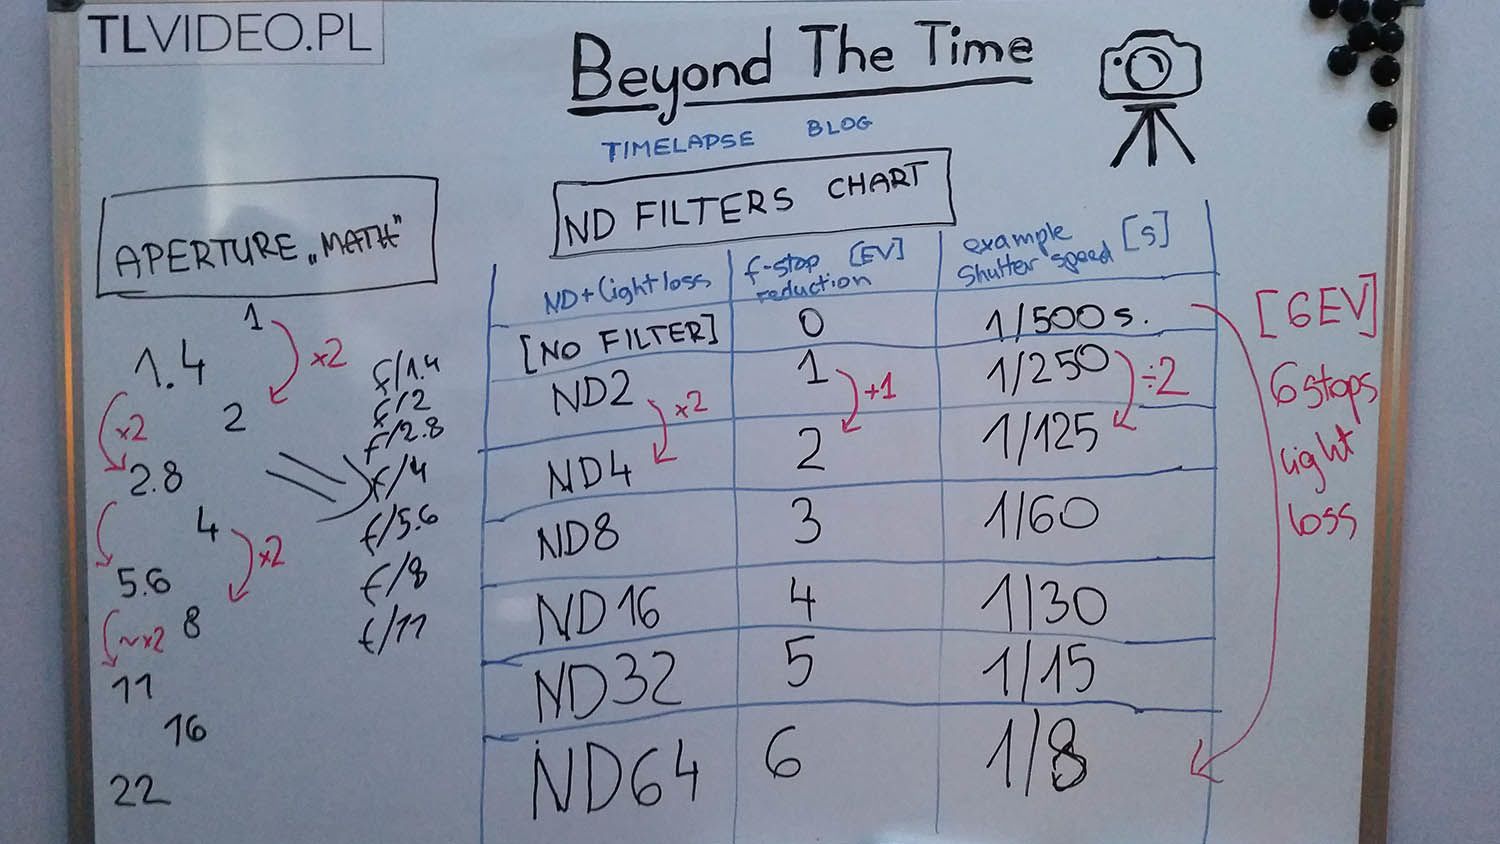 TLVIDEO.PL
Beyond The Time
TIMELAPSE BLOG
APERTURE „MATH"
1
x2
1.4
2
x2
2.8
4
x2
5.6
8
~x2
11
16
22
f/1.4
f/2
f/2.8
f/4
f/5.6
f/8
f/11
ND FILTERS CHART
ND + light loss f-stop [EV] reduction example shutter speed [s]
[NO FILTER] 0 1/500 s.
ND2 1 1/250
x2 +1 ÷2
ND4 2 1/125
ND8 3 1/60
ND16 4 1/30
ND32 5 1/15
ND64 6 1/8
[6EV]
6 stops
light
loss